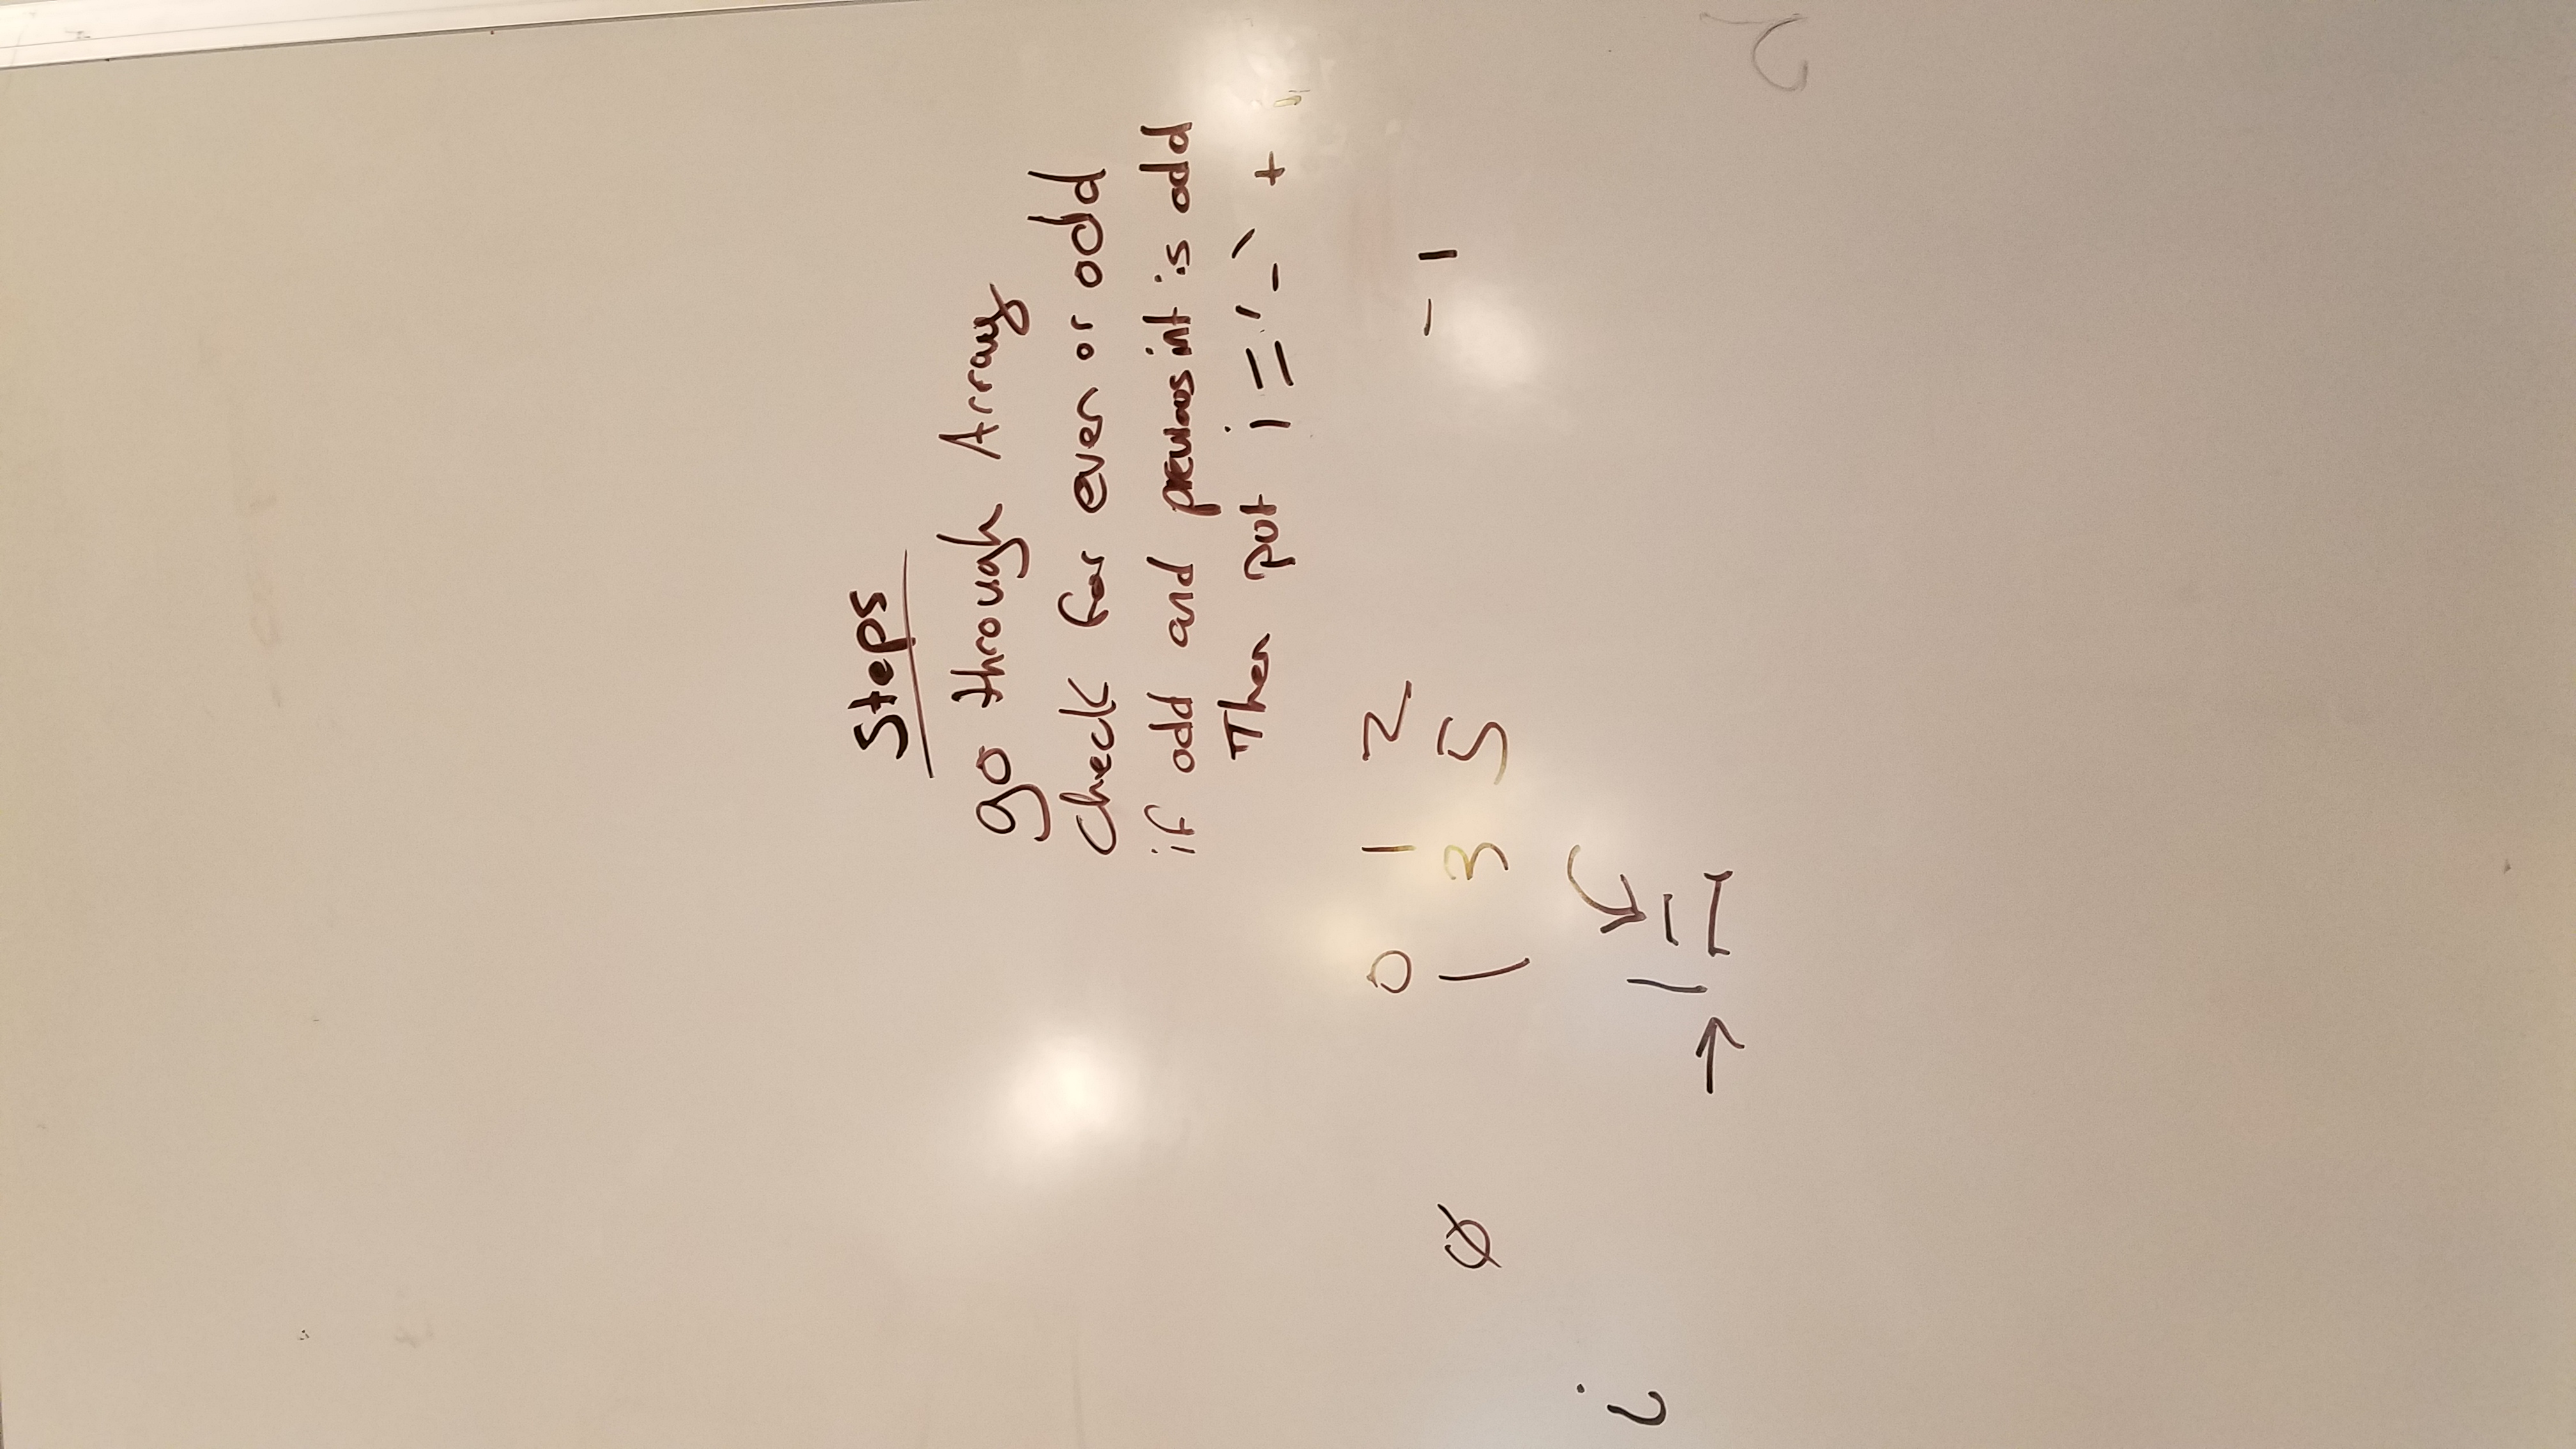 Steps
go through Array
check for even or odd
if odd and previous int is odd
Then put i = '-' +
0 1 2
Ø 1 3 5 - 1
i
→ 1 -